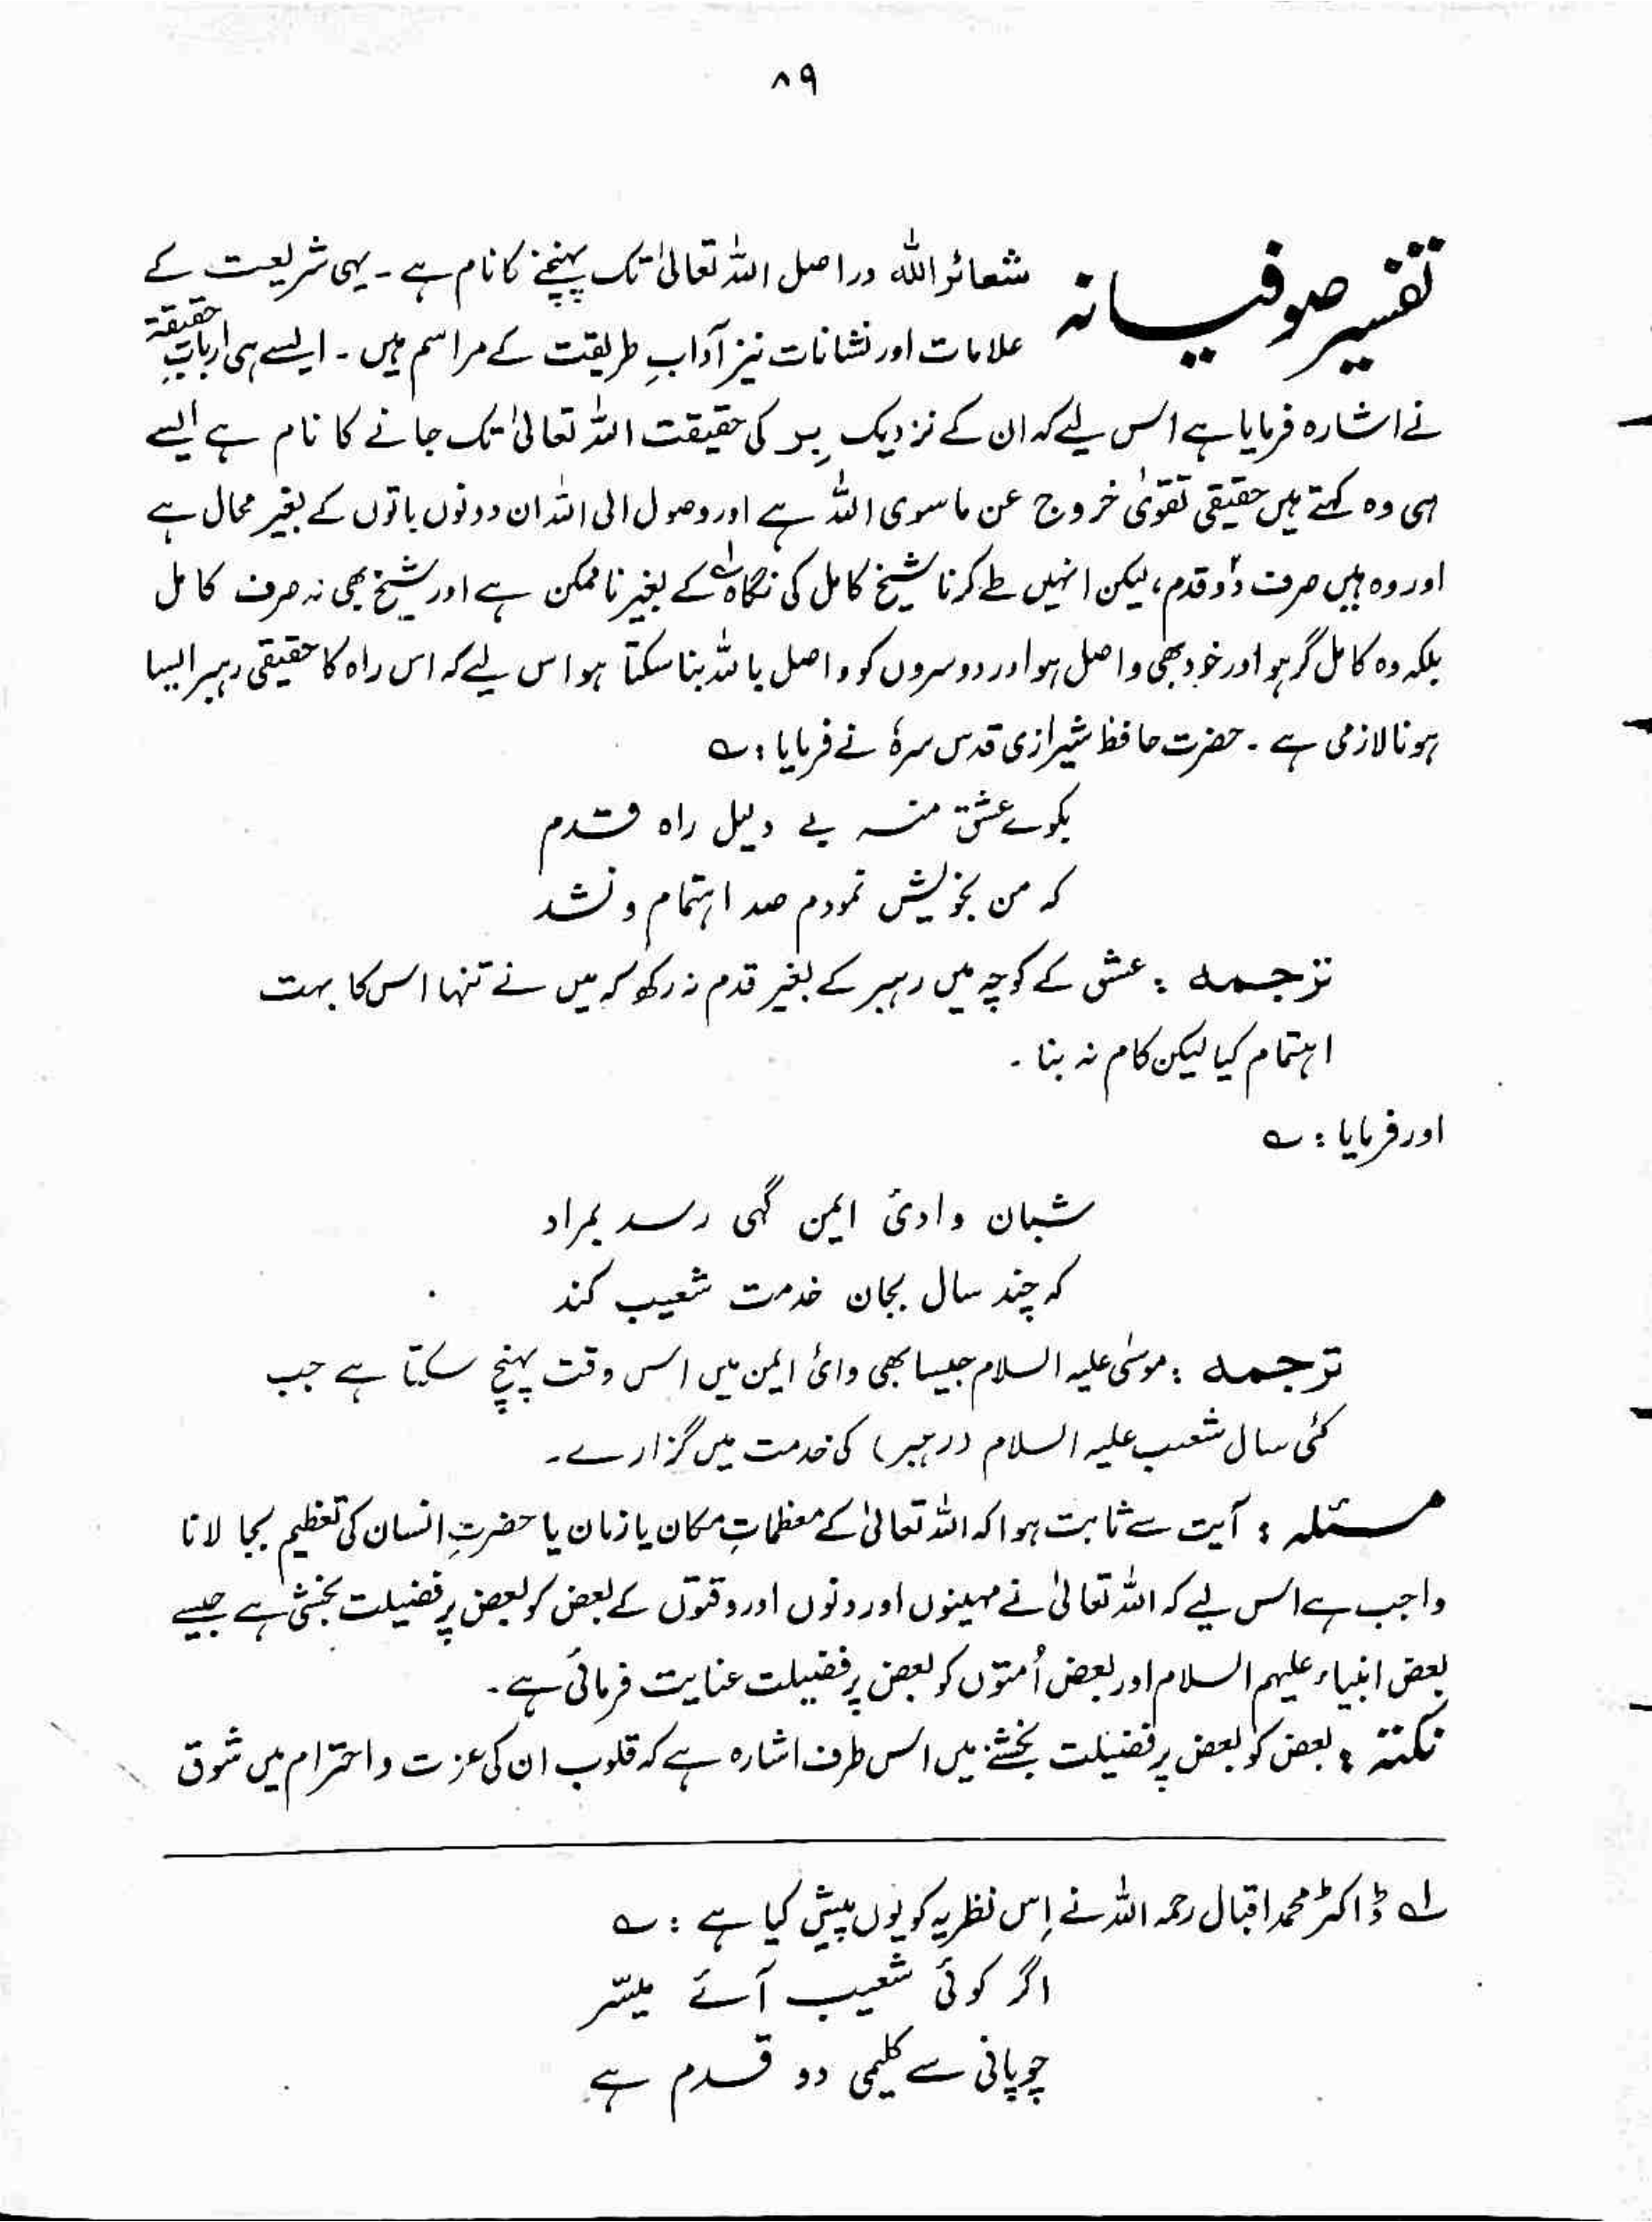 ۸۹
تفسیر صوفیانہ
شعائر اللہ دراصل اللہ تعالیٰ تک پہنچنے کا نام ہے ۔ یہی شریعت کے
علامات اور نشانات نیز آدابِ طریقت کے مراسم ہیں ۔ ایسے ہی اربابِ حقیقۃ
نے اشارہ فرمایا ہے اس لیے کہ ان کے نزدیک بِر کی حقیقت اللہ تعالیٰ تک جانے کا نام ہے ایسے
ہی وہ کہتے ہیں حقیقی تقویٰ خروج عن ماسوی اللہ ہے اور وصول الی اللہ ان دونوں باتوں کے بغیر محال ہے
اور وہ ہیں صرف دو قدم ، لیکن انہیں طے کرنا شیخ کامل کی نگاہ لہ کے بغیر ناممکن ہے اور شیخ بھی نہ صرف کامل
بلکہ وہ کامل گر ہو اور خود بھی واصل ہو اور دوسروں کو واصل باللہ بنا سکتا ہو اس لیے کہ اس راہ کا حقیقی رہبر ایسا
ہونا لازمی ہے ۔ حضرت حافظ شیرازی قدس سرہٗ نے فرمایا : ؎
بکوے عشق منہ بے دلیل راہ قدم
کہ من بخویش نمودم صد اہتمام و نشد
ترجمہ : عشق کے کوچہ میں رہبر کے بغیر قدم نہ رکھ کہ میں نے تنہا اس کا بہت
اہتمام کیا لیکن کام نہ بنا ۔
اور فرمایا : ؎
شبان وادیٔ ایمن گہی رسد بمراد
کہ چند سال بجان خدمت شعیب کند
ترجمہ : موسیٰ علیہ السلام جیسا بھی وادئ ایمن میں اس وقت پہنچ سکتا ہے جب
کئی سال شعیب علیہ السلام (رہبر) کی خدمت میں گزارے ۔
مسئلہ : آیت سے ثابت ہوا کہ اللہ تعالیٰ کے معظماتِ مکان یا زمان یا حضرتِ انسان کی تعظیم بجا لانا
واجب ہے اس لیے کہ اللہ تعالیٰ نے مہینوں اور دنوں اور وقتوں کے بعض کو بعض پر فضیلت بخشی ہے جیسے
بعض انبیاء علیہم السلام اور بعض اُمتوں کو بعض پر فضیلت عنایت فرمائی ہے ۔
نکتہ : بعض کو بعض پر فضیلت بخشنے میں اس طرف اشارہ ہے کہ قلوب ان کی عزت و احترام میں شوق
لہ ڈاکٹر محمد اقبال رحمہ اللہ نے اِس نظریہ کو یوں پیش کیا ہے : ؎
اگر کوئی شعیب آئے میسّر
چوپانی سے کلیمی دو قدم ہے